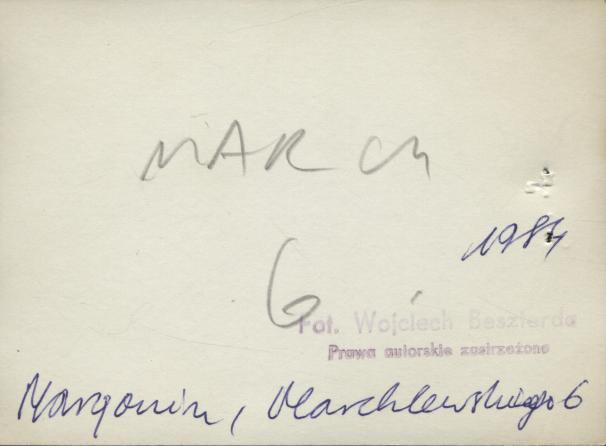 MARCH
1984
6
Fot. Wojciech Beszterda
Prawa autorskie zastrzeżone
Margonin, Marchlewskiego 6